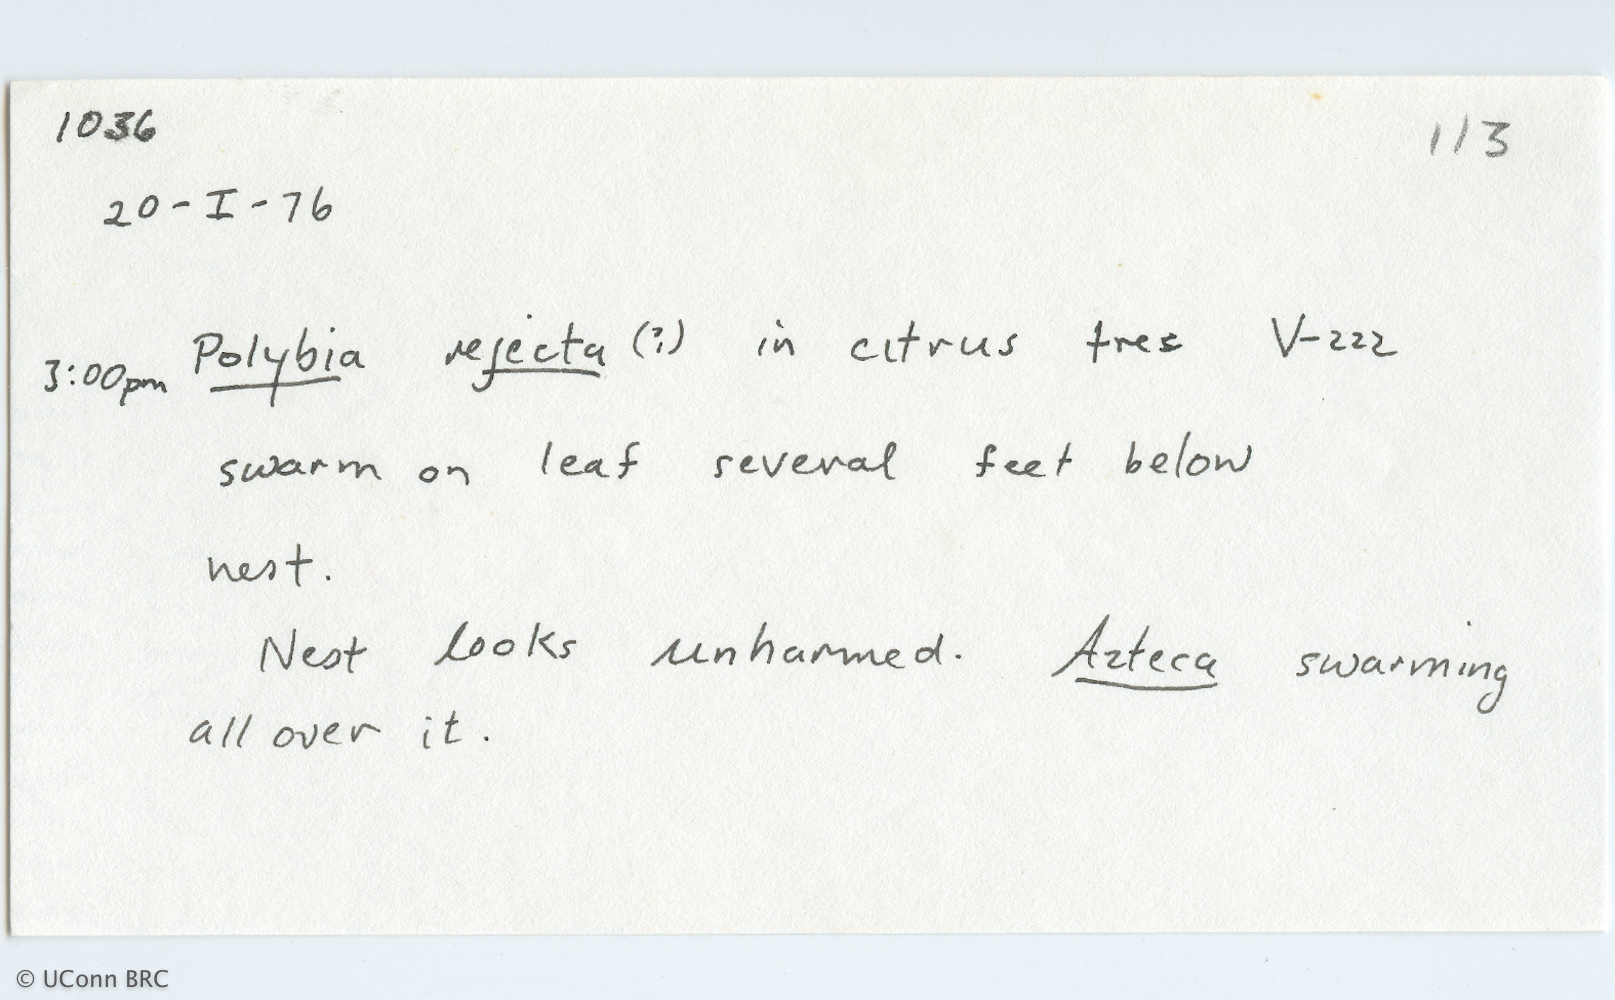 1036 1/3
20-I-76
3:00pm Polybia rejecta (?) in citrus tree V-222
swarm on leaf several feet below
nest.
Nest looks unharmed. Azteca swarming
all over it.
© UConn BRC